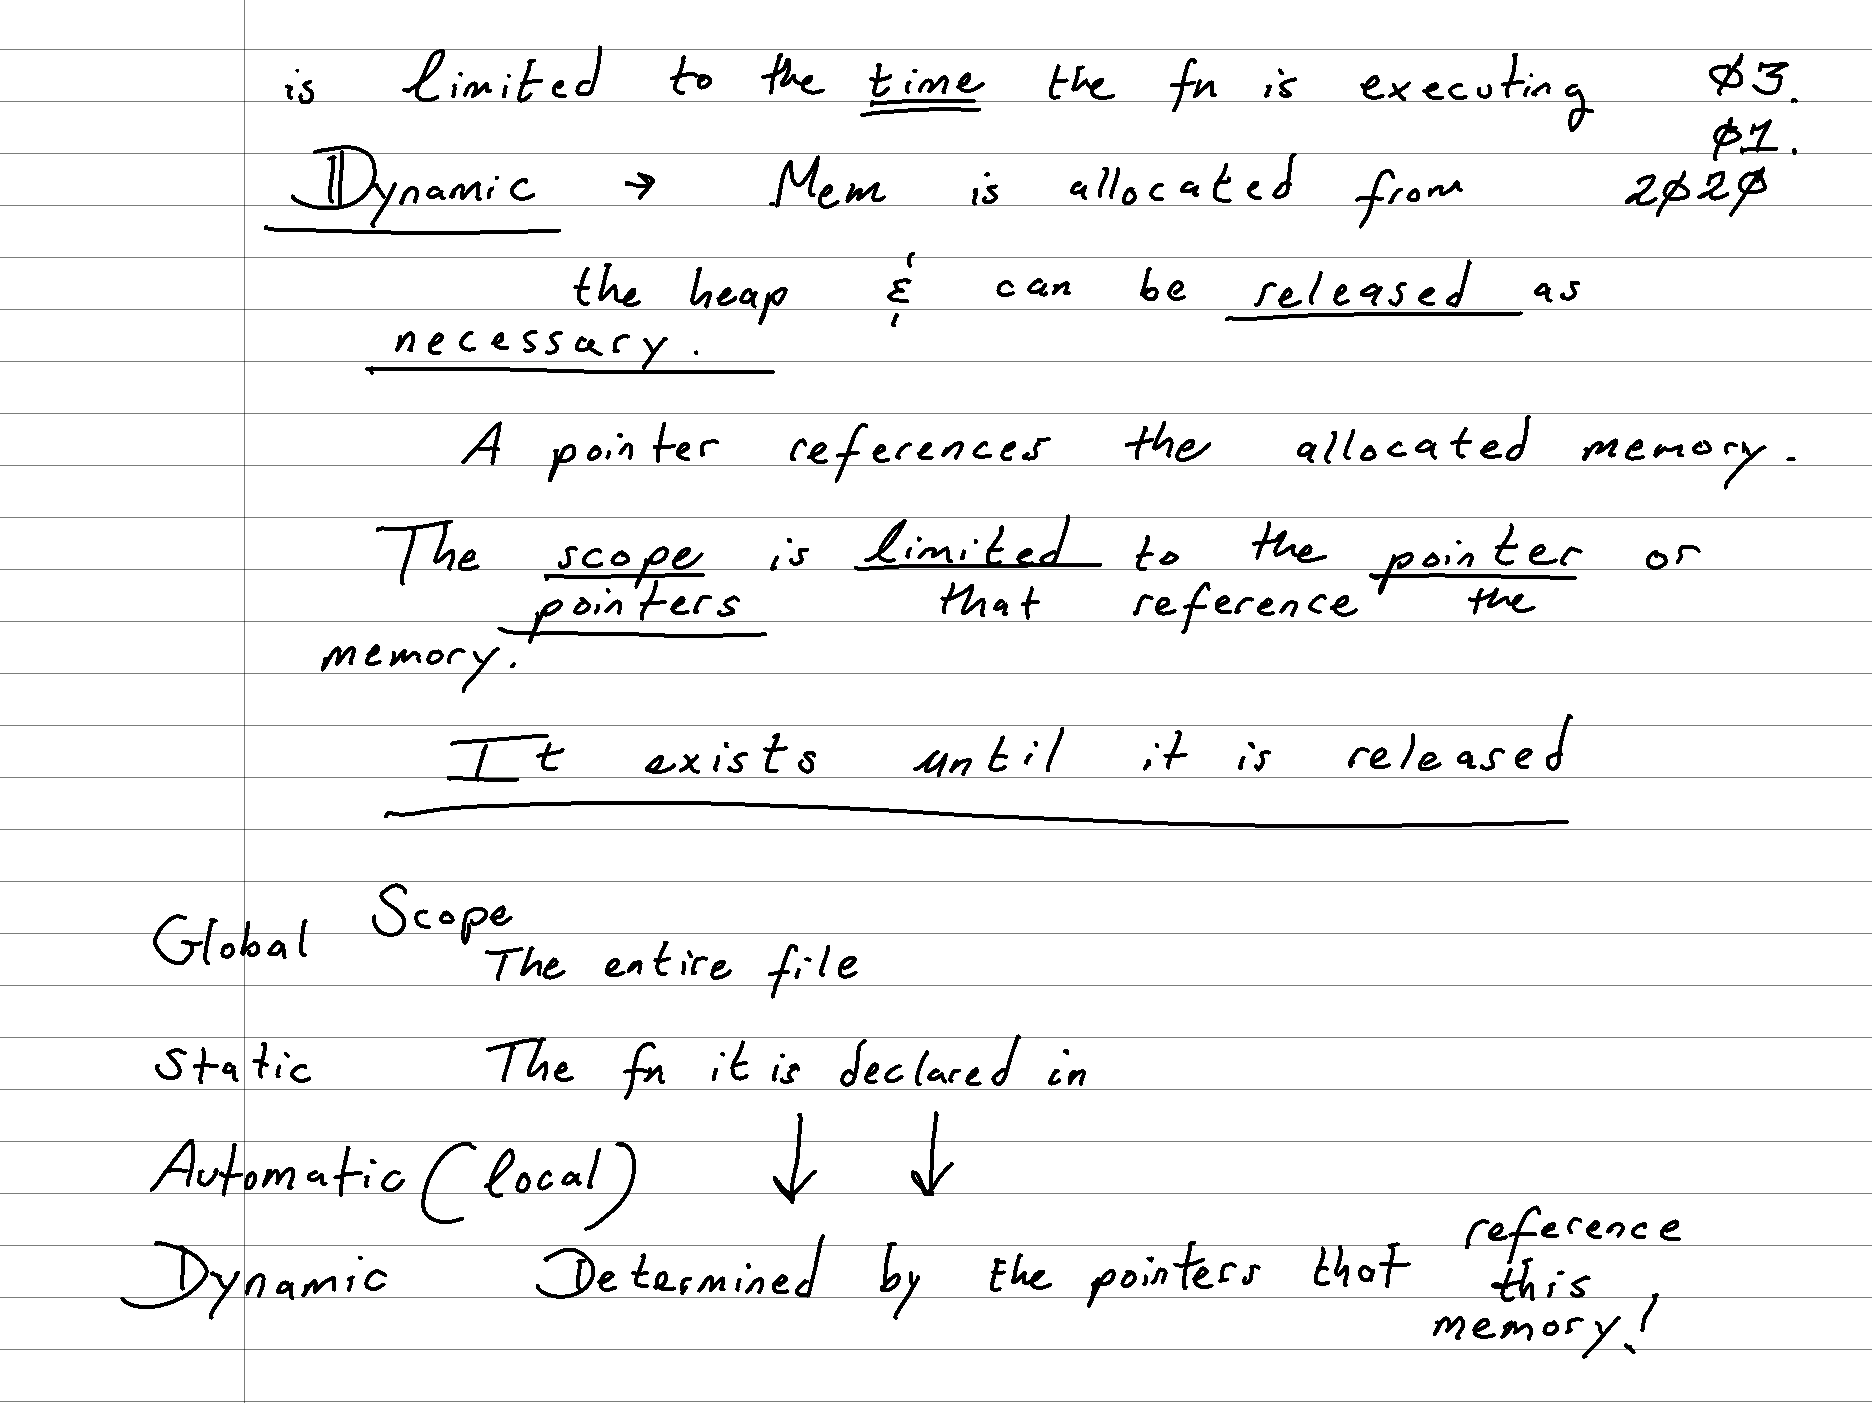 is limited to the time the fn is executing Ø3.
Ø1.
Dynamic → Mem is allocated from 2Ø2Ø
the heap & can be released as
necessary.
A pointer references the allocated memory.
The scope is limited to the pointer or
pointers that reference the
memory.
It exists until it is released
Scope
Global The entire file
Static The fn it is declared in
Automatic (local) ↓ ↓
Dynamic Determined by the pointers that reference
this
memory!